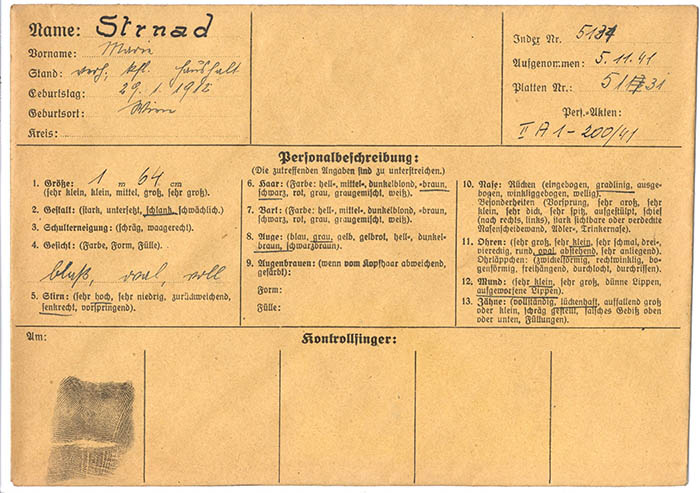 Name: Strnad
Vorname: Marie
Stand: verh. kfl. Haushalt
Geburtstag: 29. 1. 1912
Geburtsort: Wien
Kreis:
Index Nr. 5134
Aufgenommen: 5.11.41
Platten Nr.: 51 31
Pers.-Akten:
II A 1 - 200/41
Personalbeschreibung:
(Die zutreffenden Angaben sind zu unterstreichen.)
1. Größe: 1 m 64 cm
(sehr klein, klein, mittel, groß, sehr groß).
2. Gestalt: (stark, untersetzt, schlank, schwächlich).
3. Schulterneigung: (schräg, waagerecht).
4. Gesicht: (Farbe, Form, Fülle).
blaß, oval, voll
5. Stirn: (sehr hoch, sehr niedrig, zurückweichend,
senkrecht, vorspringend).
6. Haar: (Farbe: hell-, mittel-, dunkelblond, -braun,
schwarz, rot, grau, graugemischt, weiß).
7. Bart: (Farbe: hell-, mittel-, dunkelblond, -braun,
schwarz, rot, grau, graugemischt, weiß).
8. Auge: (blau, grau, gelb, gelbrot, hell-, dunkel-
braun, schwarzbraun).
9. Augenbrauen: (wenn vom Kopfhaar abweichend,
gefärbt):
Form:
Fülle:
10. Nase: Rücken (eingebogen, gradlinig, ausge-
bogen, winkliggebogen, wellig).
Besonderheiten (Vorsprung, sehr groß, sehr
klein, sehr dick, sehr spitz, aufgestülpt, schief
(nach rechts, links), stark sichtbare oder verdeckte
Nasenscheidewand, Adler-, Trinkernase).
11. Ohren: (sehr groß, sehr klein, sehr schmal, drei-,
viereckig, rund, oval, abstehend, sehr anliegend).
Ohrläppchen: (zwickelförmig, rechtwinklig, bo-
genförmig, freihängend, durchlocht, durchrissen).
12. Mund: (sehr klein, sehr groß, dünne Lippen,
aufgeworfene Lippen).
13. Zähne: (vollständig, lückenhaft, auffallend groß
oder klein, schräg gestellt, falsches Gebiß oben
oder unten, Füllungen).
Am:
Kontrollfinger: